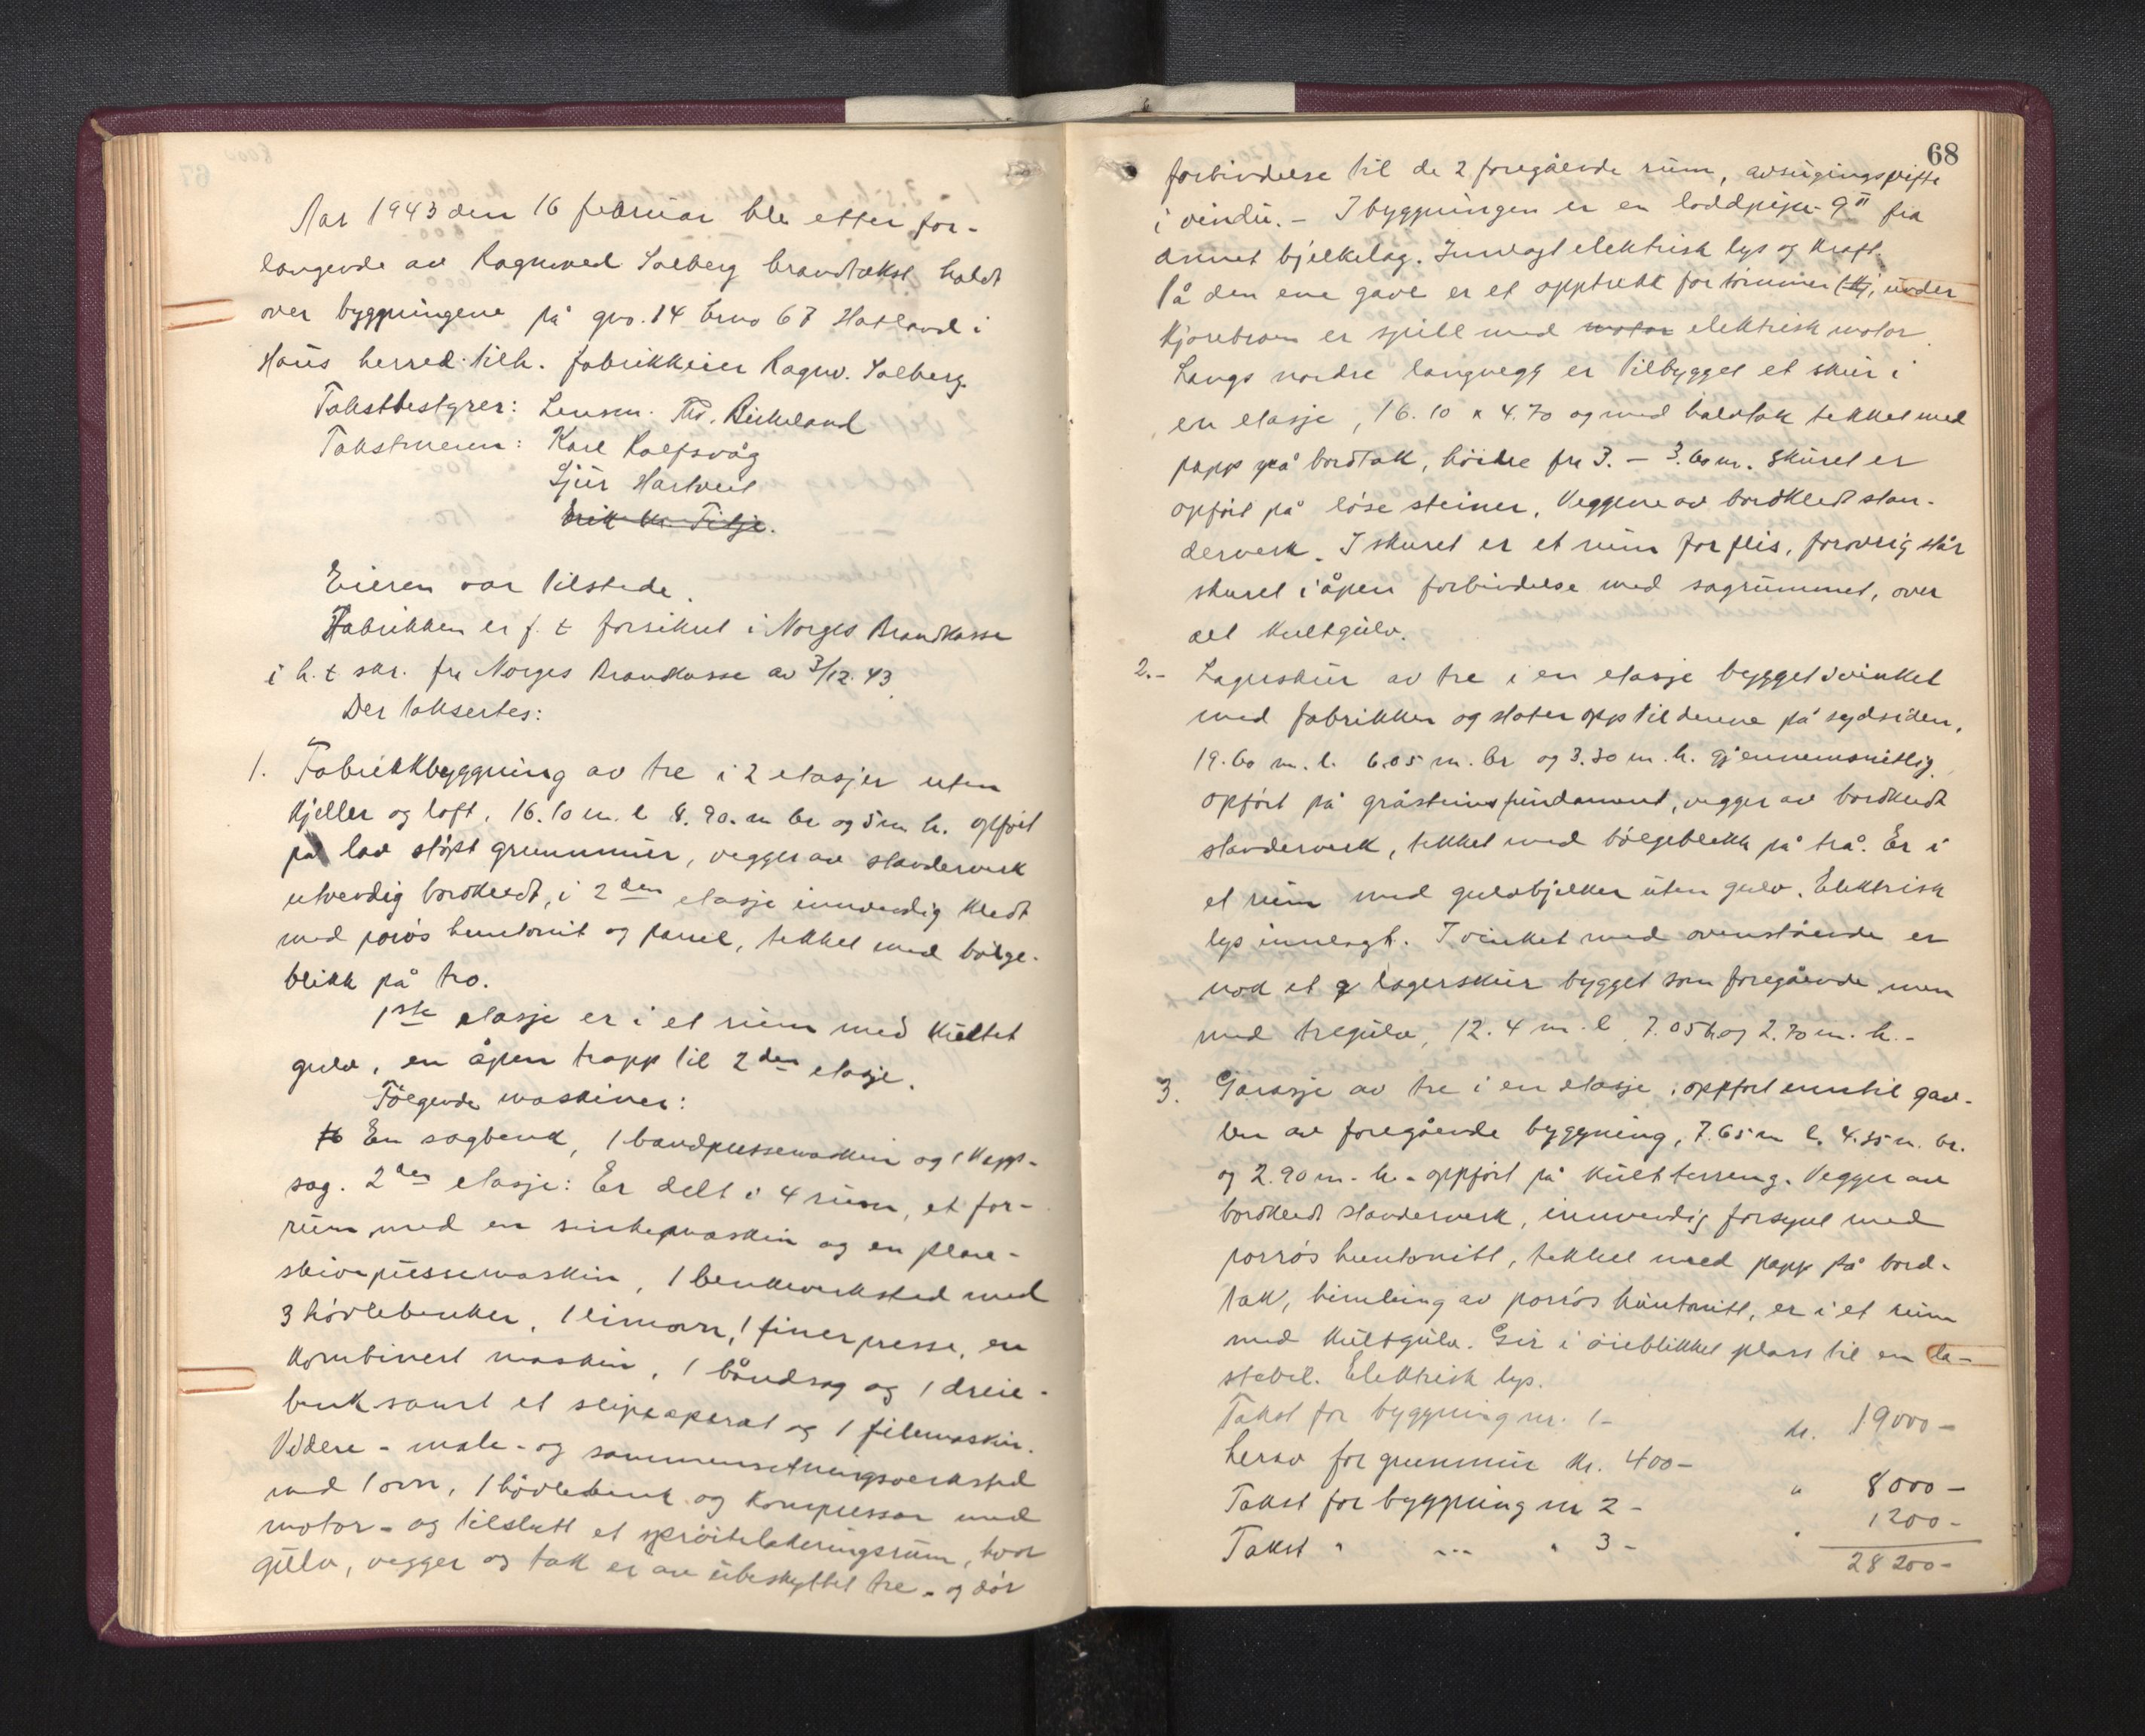 Aar 1943 den 16 februar ble etter for-
langende av Ragnvald Solberg brandtakst holdt
over byggningene på gno. 14 brno 67 Hatland i
Haus herred tilh. fabrikkeier Ragnv. Solberg.
Takstbestyrer: Lensm. Th. Birkeland
Takstmenn: Karl Rolfsvåg
Sjur Hartveit
Erik Kr. Titje.
Eieren var tilstede.
Fabrikken er f. t forsikret i Norges Brandkasse
i h. t skr. fra Norges Brandkasse av 3/12. 43
Der taksertes:
1. Fabrikkbyggning av tre i 2 etasjer uten
kjeller og loft, 16.10 m. l 8.90. m br og 5 m h. opført
på lav støpt grunnmur, vegger av standerverk
utvendig bordkledt, i 2den etasje innvendig kledt
med porøs huntonit og panel, tekket med bølge-
blikk på tro.
1ste etasje er i et rum med kultet
gulv, en åpen trapp til 2den etasje.
Følgende maskiner:
En sagbenk, 1 bandpussemaskin og 1 kapp-
sag. 2den etasje: Er delt i 4 rum, et for-
rum med en sinkemaskin og en plan-
skivepussemaskin, 1 benkverksted med
3 høvlebenker, 1 limovn, 1 finerpresse, en
kombinert maskin, 1 båndsag og 1 dreie-
benk samt et slipeaperat og 1 filemaskin.
Videre - male- og sammensetningsverksted
med 1 ovn, 1 høvlebenk og kompressor med
motor - og tilslutt et sprøitelakeringsrum, hvor
gulv, vegger og tak er av ubeskyttet tre - og dør
68
forbindelse til de 2 foregående rum, avsugingsvifte
i vindu. - I byggningen er en loddpipe 9" fra
annet bjelkelag. Innlagt elektrisk lys og kraft.
På den ene gavl er et opptrekk for tømmer, under
kjørebroen er spill med motor elektrisk motor.
Langs nordre langvegg er tilbygget et skur i
en etasje, 16.10 x 4.70 og med halvtak tekket med
papp på bordtak, høide fra 3. - 3.60 m. Skuret er
opført på løse steiner, Veggene av bordkledt stan-
derverk. I skuret er et rum for flis, forøvrig står
skuret i åpen forbindelse med sagrummet, over
alt kultgulv.
2.- Lagerskur av tre i en etasje bygget i vinkel
med fabrikken og støter opp til denne på sydsiden,
19.60 m. l. 6.05 m. br og 3.30 m. h. gjennemsnitlig,
opført på gråsteinsfundament, vegger av bordkledt
standerverk, tekket med bølgeblikk på trå. Er i
et rum med gulvbjelker uten gulv. Elektrisk
lys innlagt. I vinkel med ovenstående er
nok et lagerskur bygget som foregående men
med tregulv, 12.4 m. l 7.05 b og 2.70 m. h. -
3. Garasje av tre i en etasje, oppført inntil gav-
len av foregående byggning, 7.65 m l. 4.35 m. br.
og 2.90 m. h. - oppført på kult terreng. Vegger av
bordkledt standerverk, innvendig forsynt med
porrøs huntonitt, tekket med papp på bord-
tak, himling av porrøs huntonitt, er i et rum
med kultgulv. Gir i øieblikket plass til en la-
stebil. Elektrisk lys.
Takst for byggning nr. 1- kr. 19000 -
herav for grunnmur kr. 400 -
Takst for byggning nr 2 - " 8000 -
Takst " --- " 3 - " 1200 -
28200 -